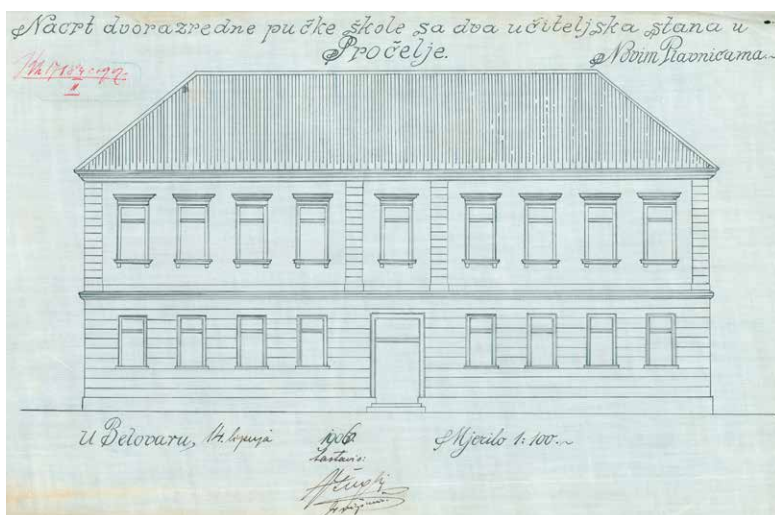 Nacrt dvorazredne pučke škole sa dva učiteljska stana u
Pročelje.
Novim Plavnicama.
U Belovaru, 14. lipnja 1906
Mjerilo 1:100.
Sastavio: